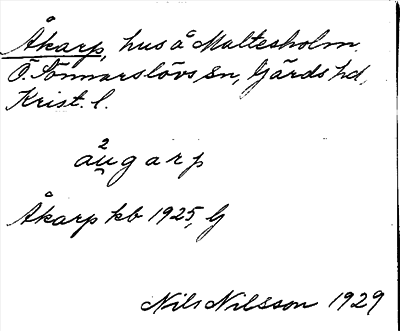 Åkarp, hus å Maltesholm.
Ö. Sönnarslövs sn, Gärds hd,
Krist. l.
a²u̯garp
Åkarp kb 1925, G
Nils Nilsson 1929